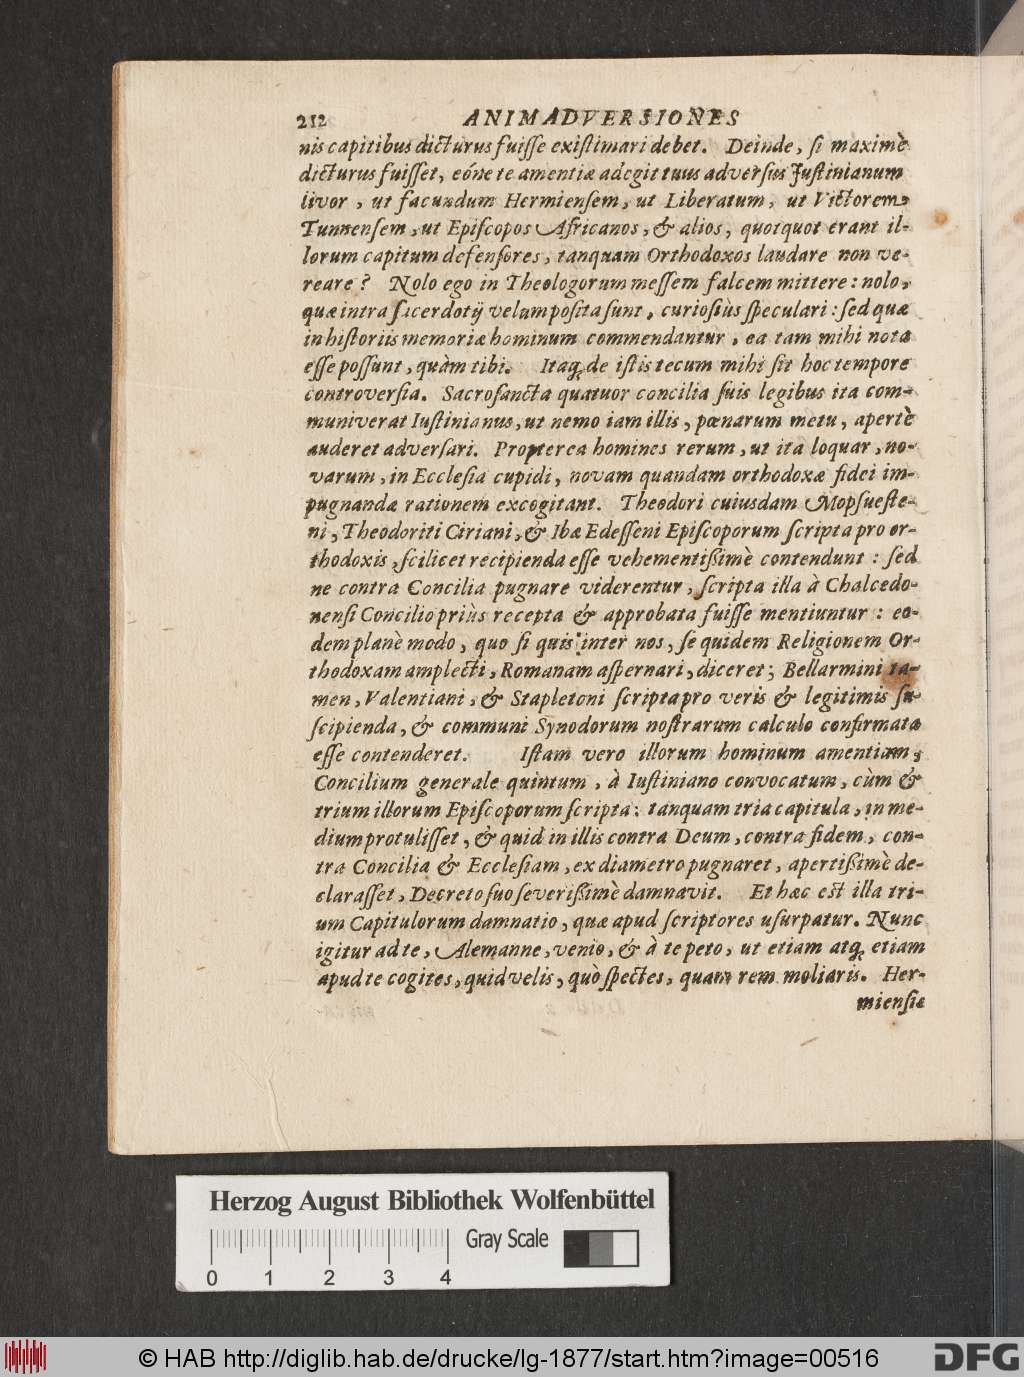 212 ANIMADVERSIONES
nis capitibus dicturus fuisse existimari debet. Deinde, si maximè
dicturus fuisset, eóne te amentiæ adegit tuus adversus Justinianum
livor, ut facundum Hermiensem, ut Liberatum, ut Victorem
Tunnensem, ut Episcopos Africanos, & alios, quotquot erant il-
lorum capitum defensores, tanquam Orthodoxos laudare non ve-
reare? Nolo ego in Theologorum messem falcem mittere: nolo,
quæ intra sacerdotij velum posita sunt, curiosiùs speculari: sed quæ
in historiis memoriæ hominum commendantur, ea tam mihi nota
esse possunt, quàm tibi. Itaq; de istis tecum mihi sit hoc tempore
controversia. Sacrosancta quatuor concilia suis legibus ita com-
muniverat Iustinianus, ut nemo iam illis, pœnarum metu, apertè
auderet adversari. Propterea homines rerum, ut ita loquar, no-
varum, in Ecclesia cupidi, novam quandam orthodoxæ fidei im-
pugnandæ rationem excogitant. Theodori cuiusdam Mopsueste-
ni, Theodoriti Ciriani, & Ibæ Edesseni Episcoporum scripta pro or-
thodoxis, scilicet recipienda esse vehementissimè contendunt: sed
ne contra Concilia pugnare viderentur, scripta illa à Chalcedo-
nensi Concilio priùs recepta & approbata fuisse mentiuntur: eo-
dem planè modo, quo si quis inter nos, se quidem Religionem Or-
thodoxam amplecti, Romanam aspernari, diceret; Bellarmini ta-
men, Valentiani, & Stapletoni scripta pro veris & legitimis su-
scipienda, & communi Synodorum nostrarum calculo confirmata
esse contenderet. Istam vero illorum hominum amentiam,
Concilium generale quintum, à Iustiniano convocatum, cùm &
trium illorum Episcoporum scripta: tanquam tria capitula, in me-
dium protulisset, & quid in illis contra Deum, contra fidem, con-
tra Concilia & Ecclesiam, ex diametro pugnaret, apertissimè de-
clarasset, Decreto suo severissimè damnavit. Et hæc est illa tri-
um Capitulorum damnatio, quæ apud scriptores usurpatur. Nunc
igitur ad te, Alemanne, venio, & à te peto, ut etiam atq; etiam
apud te cogites, quid velis, quò spectes, quam rem moliaris. Her-
miensis
Herzog August Bibliothek Wolfenbüttel
Gray Scale
0 1 2 3 4
© HAB http://diglib.hab.de/drucke/lg-1877/start.htm?image=00516
DFG